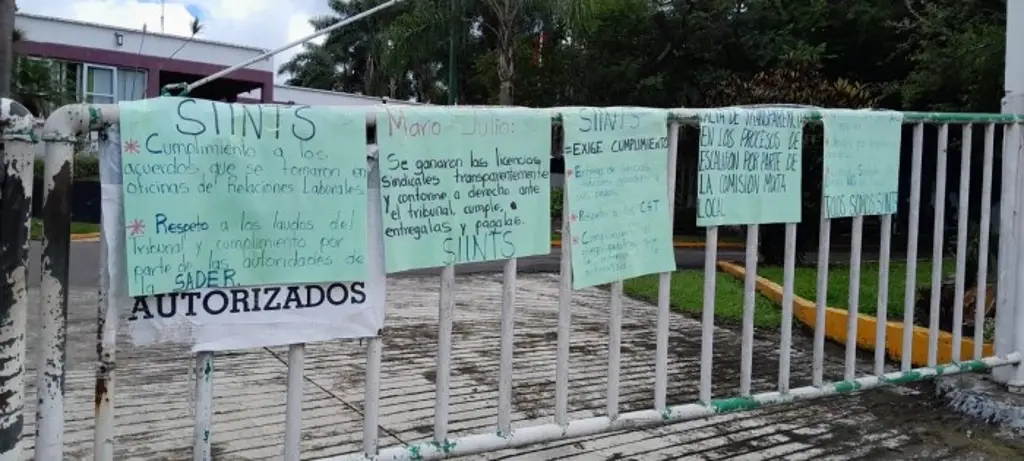 SIINTS
* Cumplimiento a los
acuerdos que se tomaron en
oficinas de Relaciones Laborales.
* Respeto a los laudos del
tribunal y cumplimiento por
parte de las autoridades de
la SADER.
AUTORIZADOS
Mario - Julio:
Se ganaron las licencias
Sindicales transparentemente
y conforme a derecho ante
el tribunal, cumple,
entregalas y pagalas.
SIINTS
SIINTS
=EXIGE CUMPLIMIENTO
* Respeto a las CGT
*
FALTA DE TRANSPARENCIA
EN LOS PROCESOS DE
ESCALAFON POR PARTE DE
LA COMISION MIXTA
LOCAL
TODOS SOMOS SIINTS